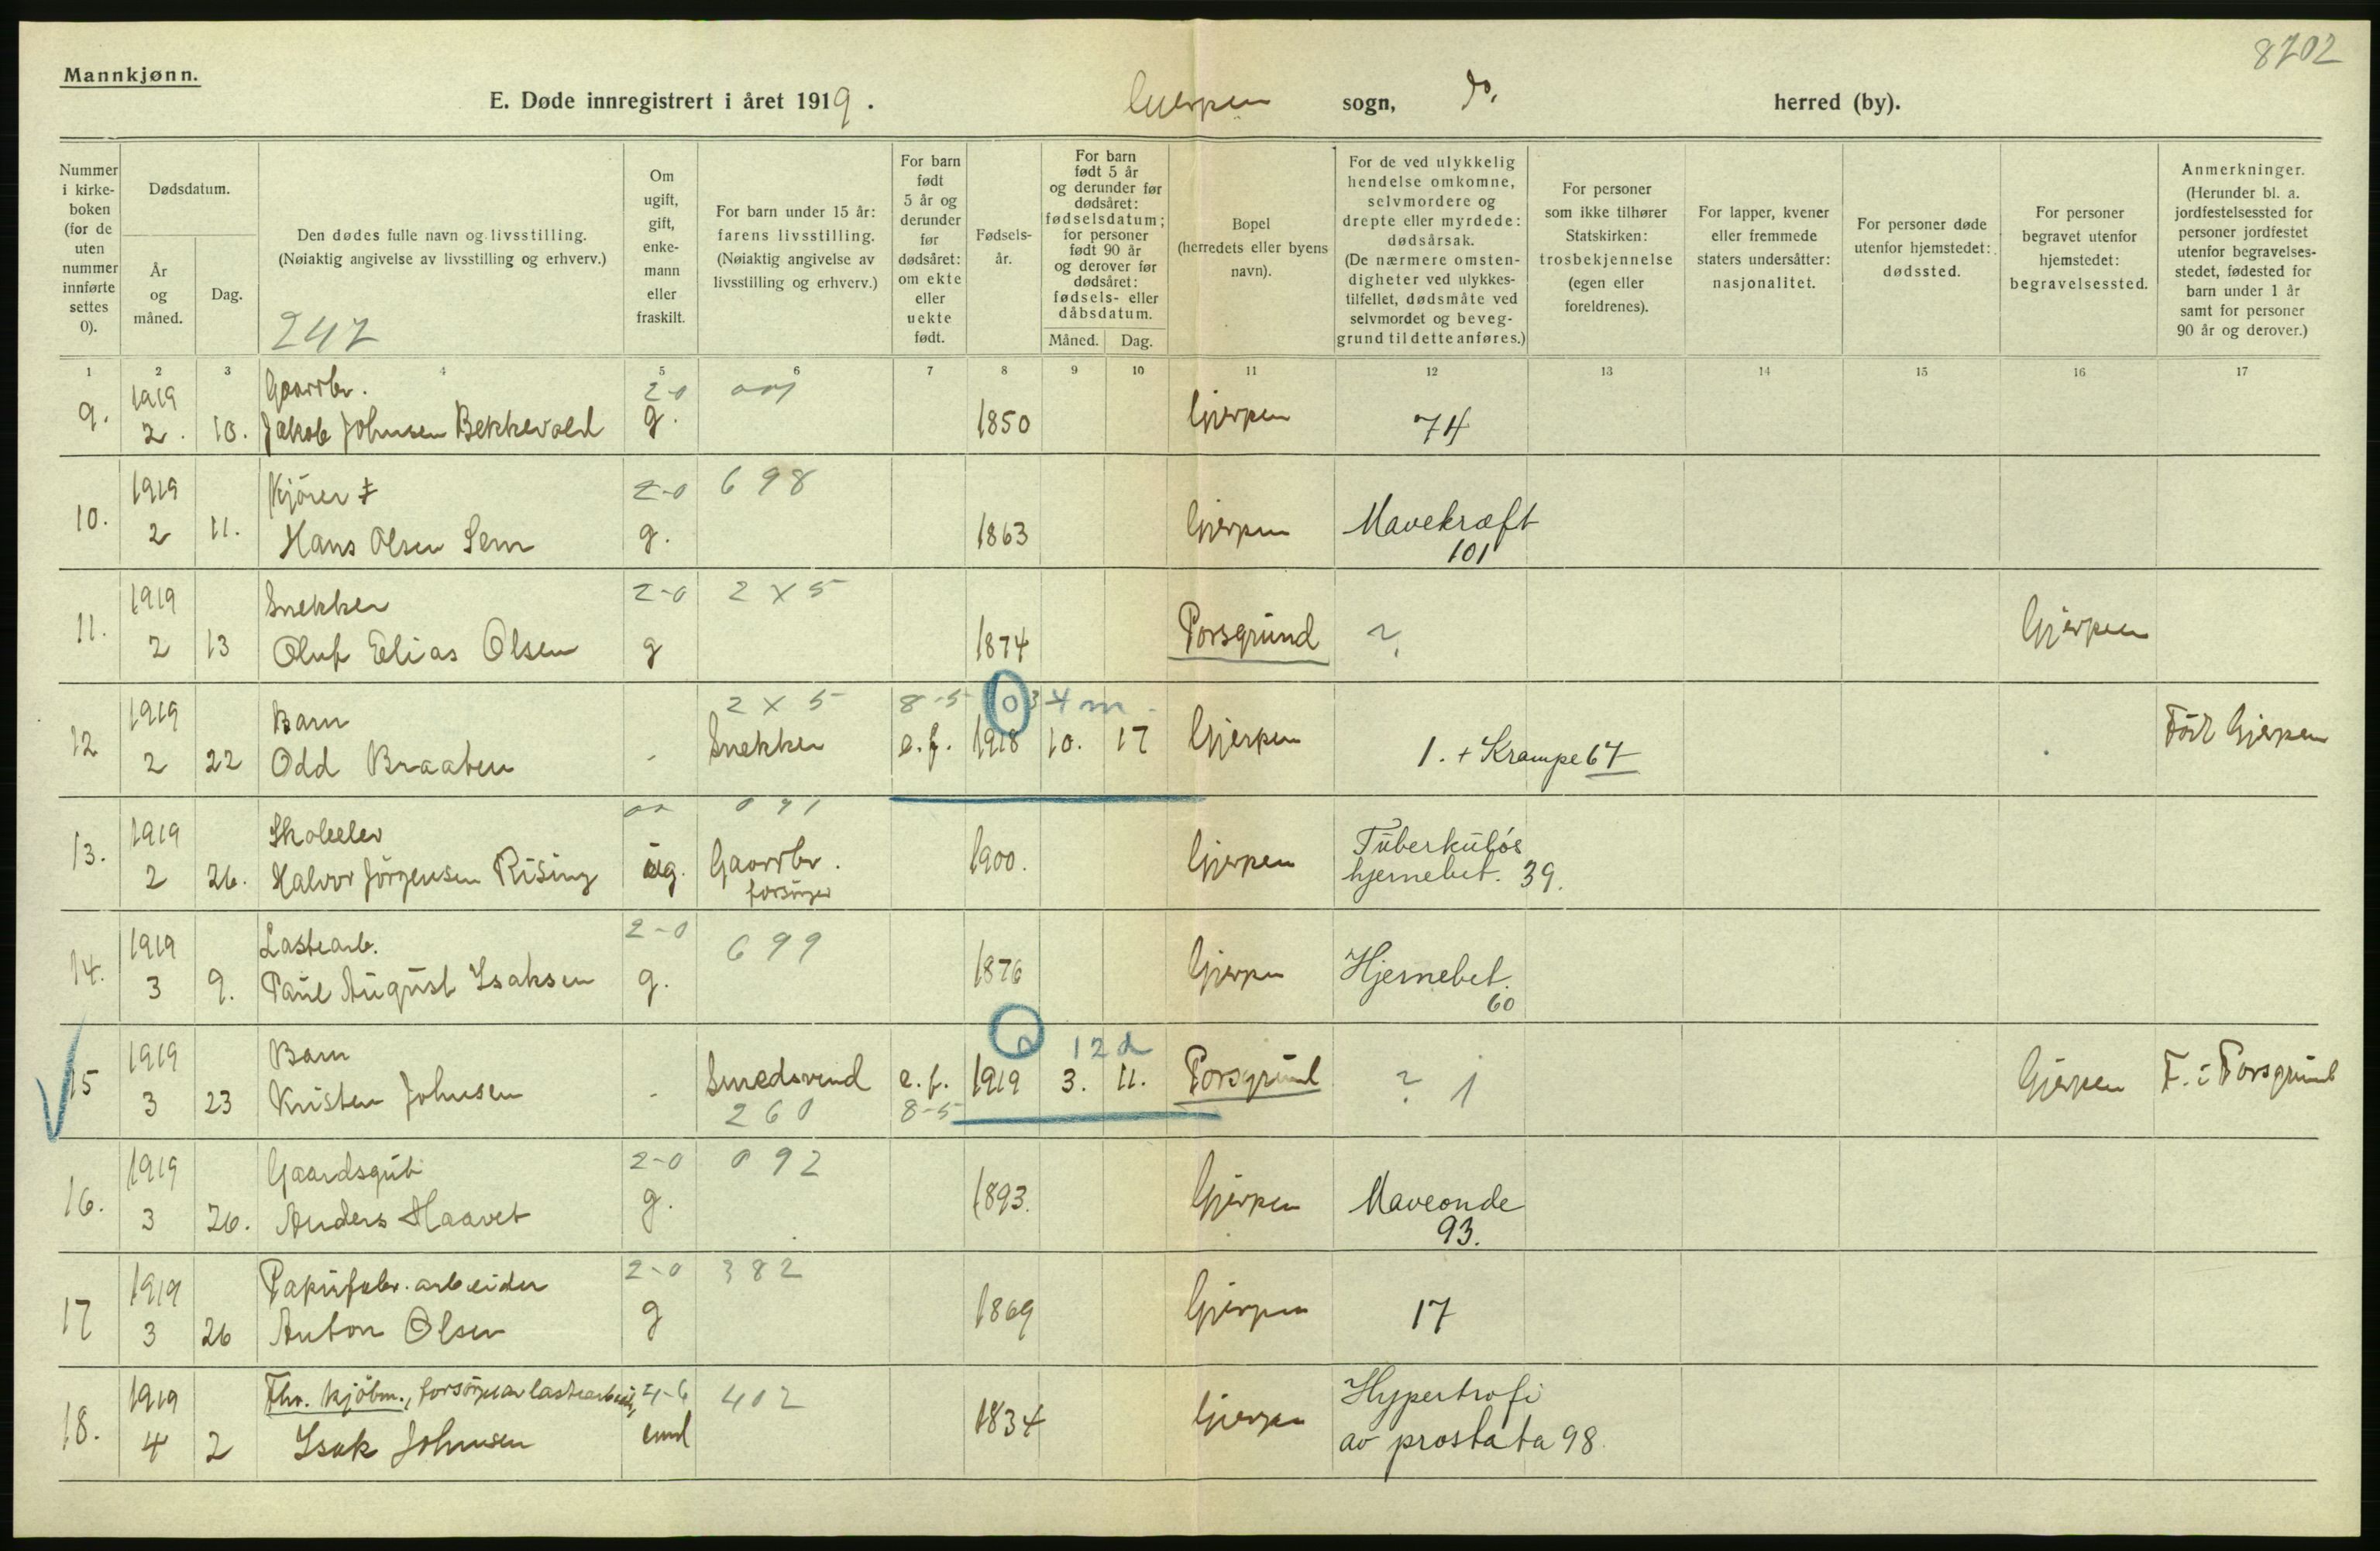 8202
Mannkjønn.
E. Døde innregistrert i året 1919.
Gjerpen sogn, do. herred (by).
Nummer i kirkeboken (for de uten nummer innførte settes 0).
Dødsdatum.
År og måned.
Dag.
Den dødes fulle navn og livsstilling.
(Nøiaktig angivelse av livsstilling og erhverv.)
247
Om ugift, gift, enkemann eller fraskilt.
For barn under 15 år: farens livsstilling. (Nøiaktig angivelse av livsstilling og erhverv.)
For barn født 5 år og derunder før dødsåret: om ekte eller uekte født.
Fødselsår.
For barn født 5 år og derunder før dødsåret: fødselsdatum; for personer født 90 år og derover før dødsåret: fødsels- eller dåbsdatum.
Måned.
Dag.
Bopel (herredets eller byens navn).
For de ved ulykkelig hendelse omkomne, selvmordere og drepte eller myrdede: dødsårsak. (De nærmere omstendigheter ved ulykkestilfellet, dødsmåte ved selvmordet og beveggrund til dette anføres.)
For personer som ikke tilhører Statskirken: trosbekjennelse (egen eller foreldrenes).
For lapper, kvener eller fremmede staters undersåtter: nasjonalitet.
For personer døde utenfor hjemstedet: dødssted.
For personer begravet utenfor hjemstedet: begravelsessted.
Anmerkninger. (Herunder bl. a. jordfestelsessted for personer jordfestet utenfor begravelsesstedet, fødested for barn under 1 år samt for personer 90 år og derover.)
1 2 3 4 5 6 7 8 9 10 11 12 13 14 15 16 17
1919 Gaardbr. 2-0
9. 2. 10. Jakob Johnsen Bekkevold g. 1850 Gjerpen 74
1919 Kjører 2-0 698
10. 2 11. Hans Olsen Sem g. 1863 Gjerpen Mavekræft
101
1919 Snekker 2-0 2X5
11. 2 13 Oluf Elias Olsen g 1874 Porsgrund ? Gjerpen
1919 Barn 2X5 8-5 0 3 4 m
12 2 22 Odd Braaten - Snekker e.f. 1918 10. 17 Gjerpen 1. + Krampe 67 Född Gjerpen
1919 Skoleelev 091
13. 2 26. Halvor Jörgensen Rising ug. Gaardbr. 1900. Gjerpen Tüberkulös
forsörger hjernebet. 39.
1919 Lastearb. 2-0 699
14. 3 9. Paul August Isaksen g. 1876 Gjerpen Hjernebet.
60
1919 Barn 0 12 d
15 3 23 Kristen Johnsen - Smedsvend e.f. 1919 3. 11. Porsgrund ? 1 Gjerpen F. i Porsgrund
260 8-5
1919 Gaardsgut 2-0 092
16. 3 26. Anders Haavet g. 1893. Gjerpen Maveonde
93.
1919 Papirfabr. arbeider 2-0 382
17 3 26 Anton Olsen g 1869 Gjerpen 17
1919 Fhv. kjöbm., forsörges av lastearbeid, 4-6 402
18. 4 2 Isak Johnsen enm 1834 Gjerpen Hypertrofi
av prostata 98.